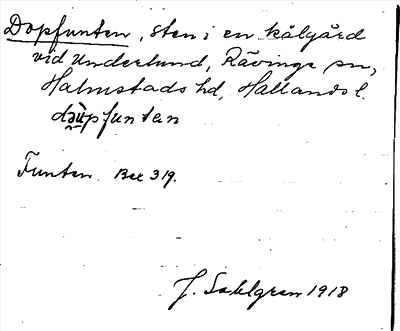 Dopfunten, sten i en kålgård
vid Underlund, Rävinge sn,
Halmstads hd, Hallands l.
dəupfuntən
Funten. Bex 319.
J. Sahlgren 1918